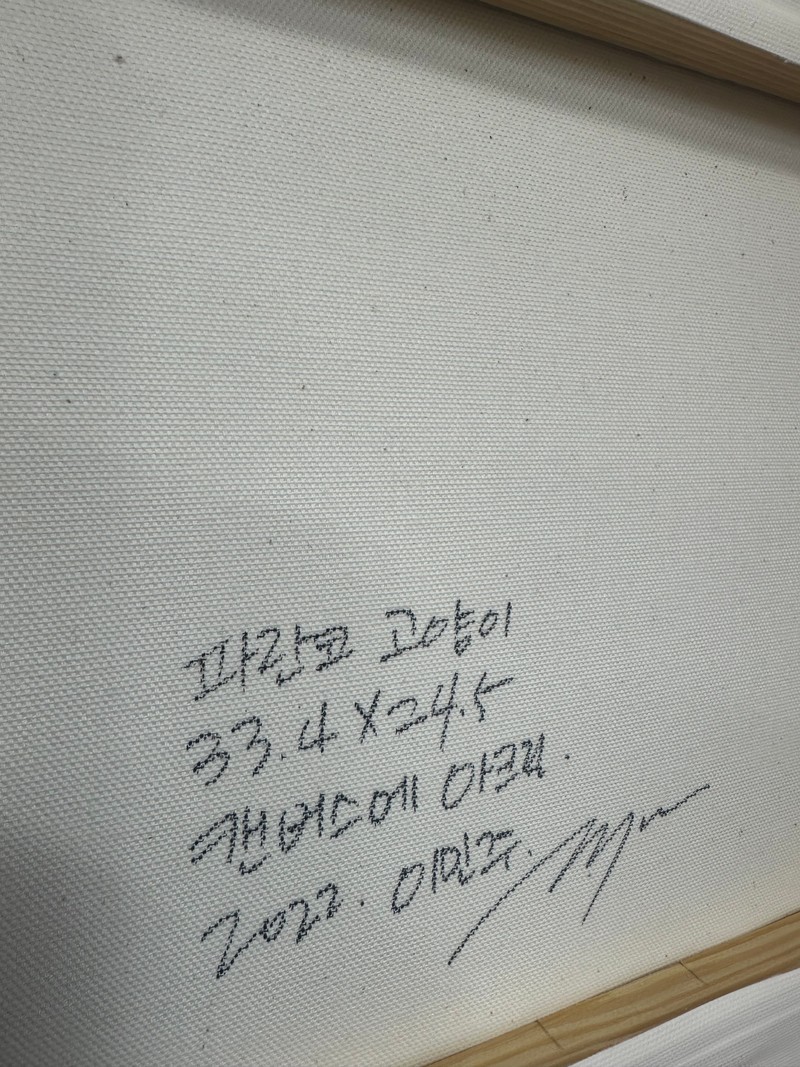 파란코 고양이
33.4 X 24.5
캔버스에 아크릴.
2022. 이민주.